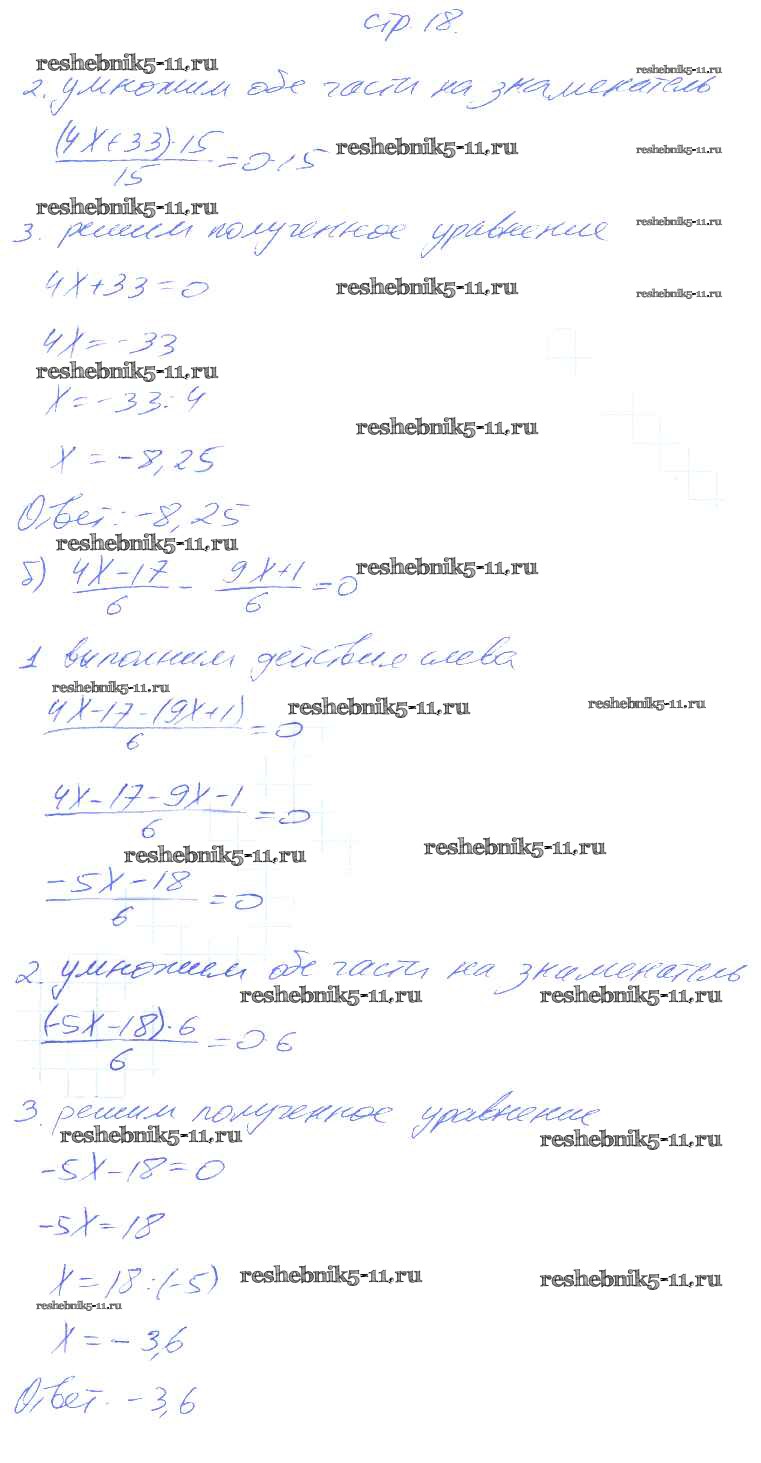 стр. 18.
reshebnik5-11.ru
reshebnik5-11.ru
2. умножим обе части на знаменатель
(4x+33)·15
15
=0·15
reshebnik5-11.ru
reshebnik5-11.ru
reshebnik5-11.ru
3. решим полученное уравнение
reshebnik5-11.ru
4x+33=0
reshebnik5-11.ru
reshebnik5-11.ru
4x=-33
reshebnik5-11.ru
x=-33:4
reshebnik5-11.ru
x=-8,25
Ответ: -8,25
reshebnik5-11.ru
б) 4x-17/6 - 9x+1/6 =0
reshebnik5-11.ru
1 выполним действия слева
reshebnik5-11.ru
4x-17-(9x+1)/6 =0
reshebnik5-11.ru
reshebnik5-11.ru
4x-17-9x-1/6 =0
reshebnik5-11.ru
reshebnik5-11.ru
-5x-18/6 =0
2. умножим обе части на знаменатель
reshebnik5-11.ru
reshebnik5-11.ru
(-5x-18)·6/6 =0·6
3. решим полученное уравнение
reshebnik5-11.ru
reshebnik5-11.ru
-5x-18=0
-5x=18
x=18:(-5)
reshebnik5-11.ru
reshebnik5-11.ru
reshebnik5-11.ru
x=-3,6
Ответ. -3,6